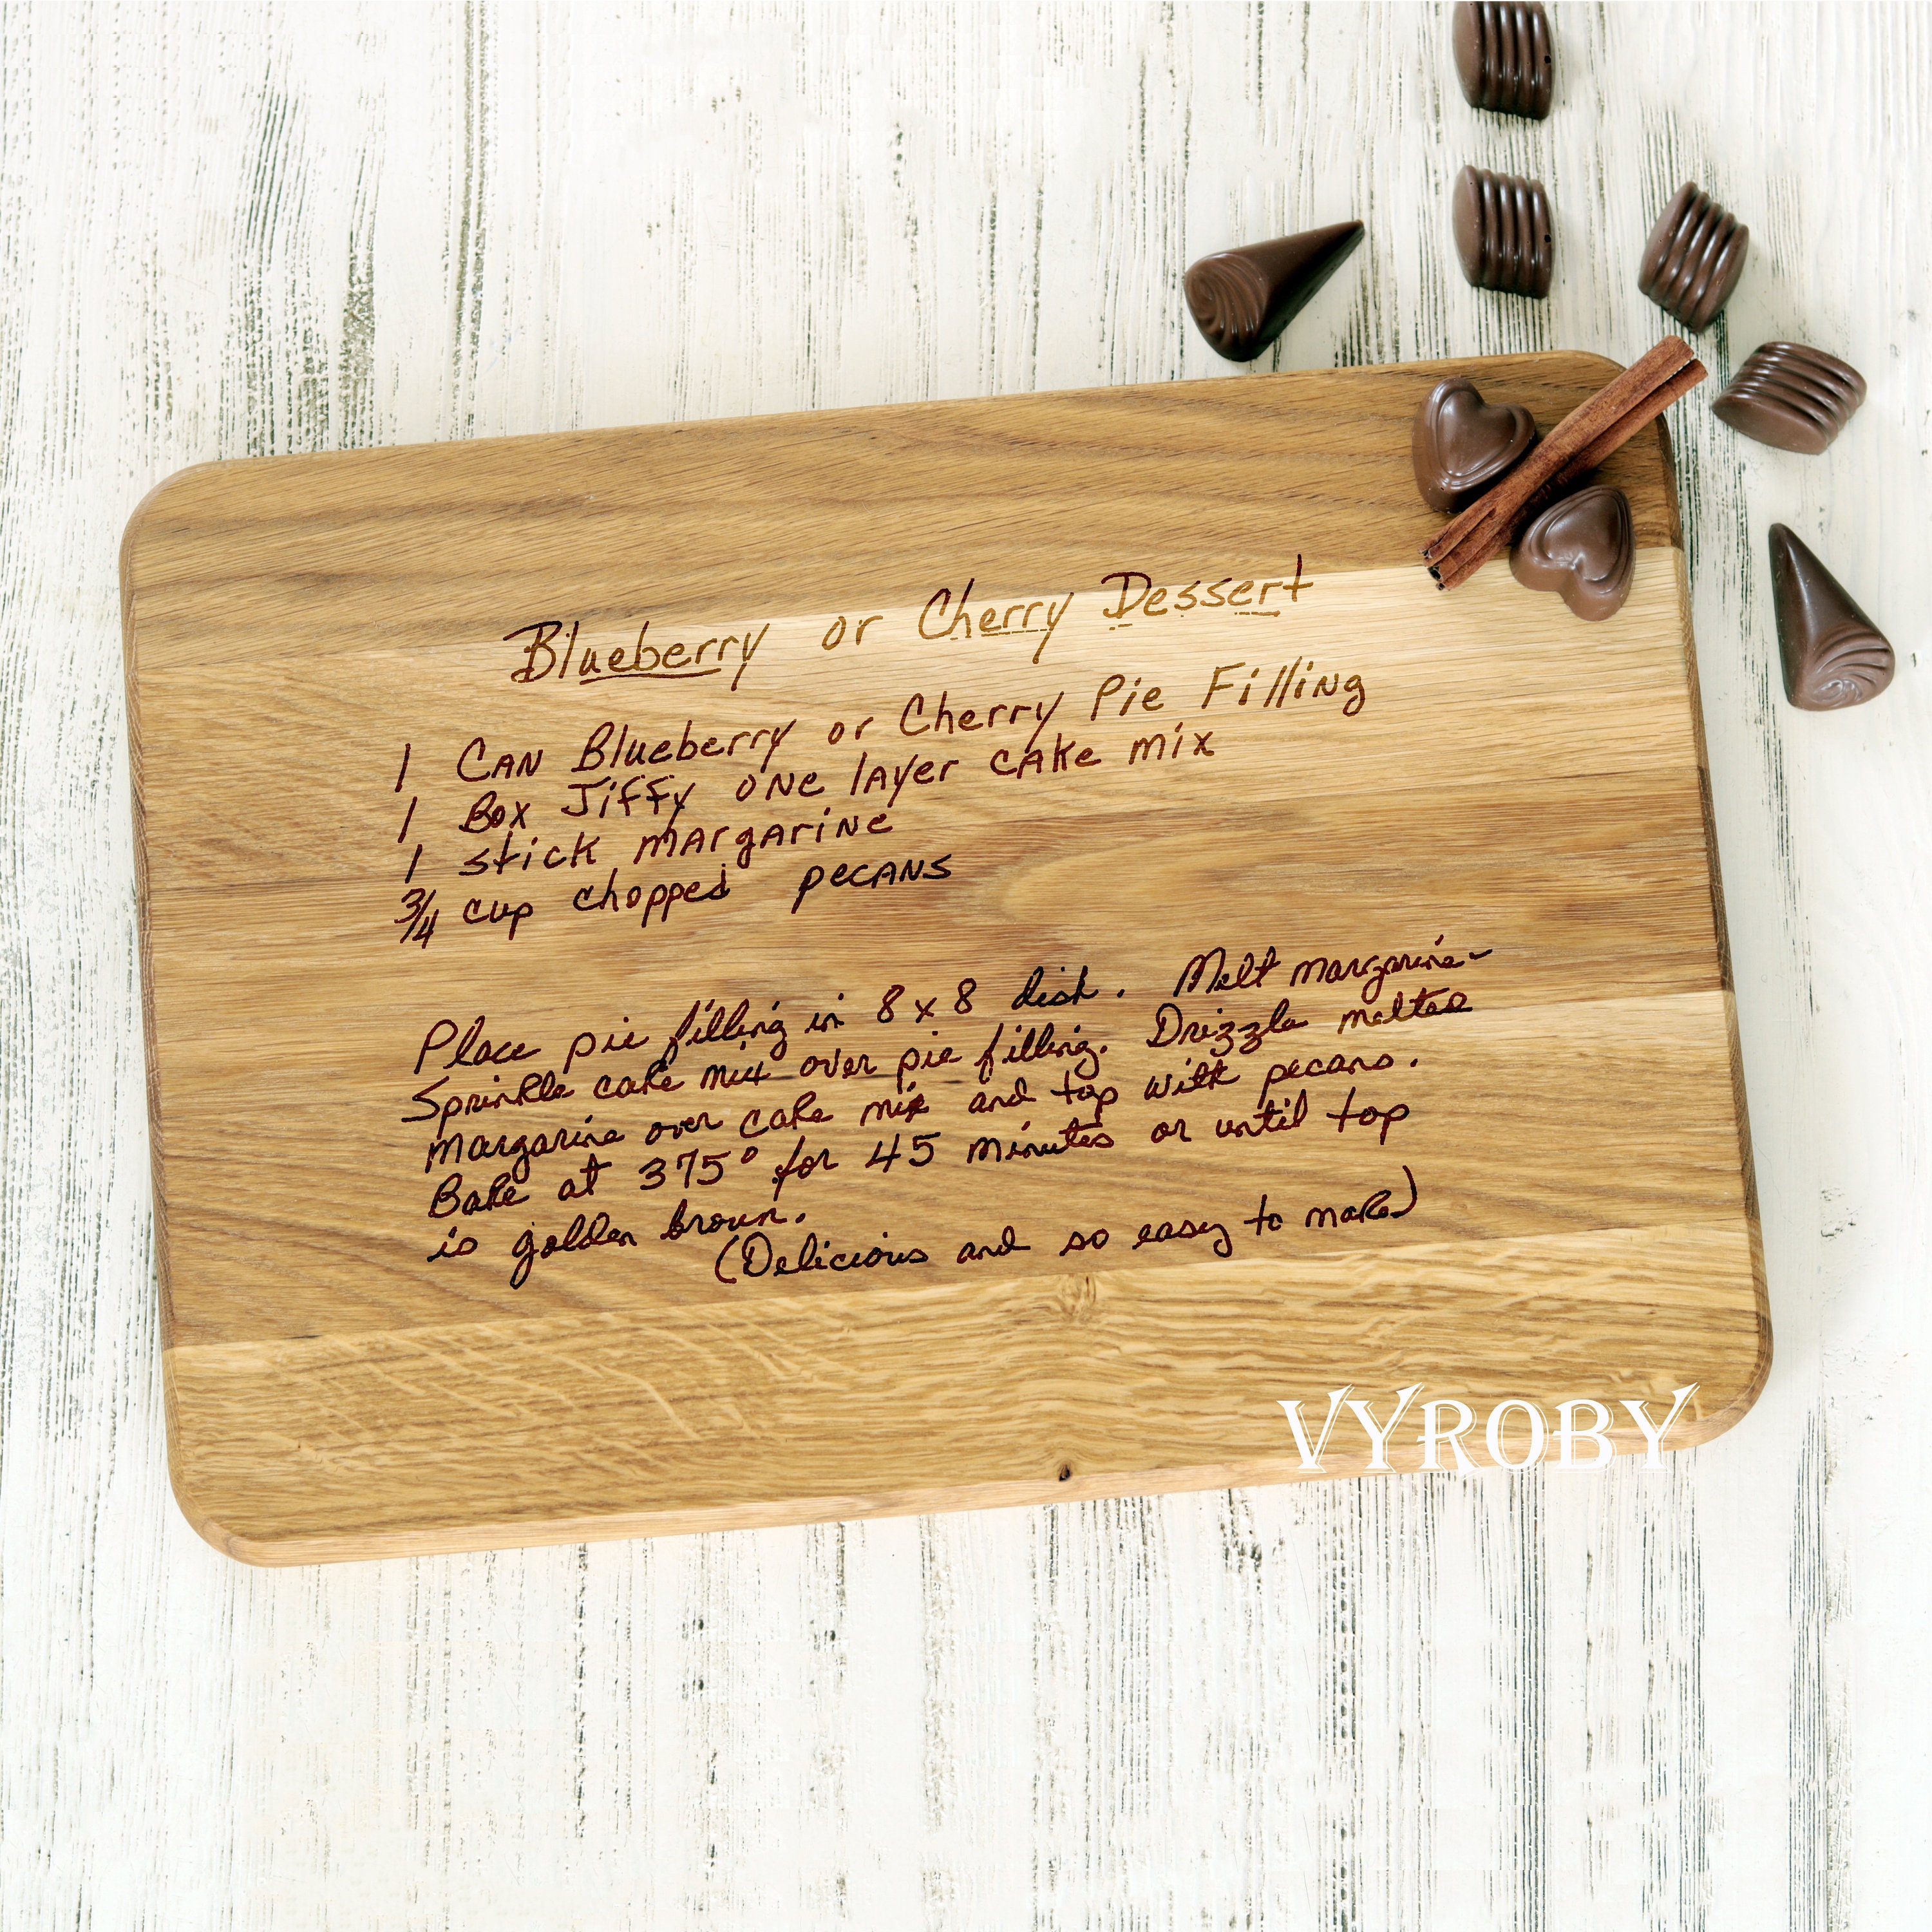 Blueberry or Cherry Dessert
1 Can Blueberry or Cherry Pie Filling
1 Box Jiffy one layer cake mix
1 stick margarine
3/4 cup chopped pecans
Place pie filling in 8 x 8 dish. Melt margarine-
Sprinkle cake mix over pie filling. Drizzle melted
margarine over cake mix and top with pecans.
Bake at 375° for 45 minutes or until top
is golden brown.
(Delicious and so easy to make)
VYROBY